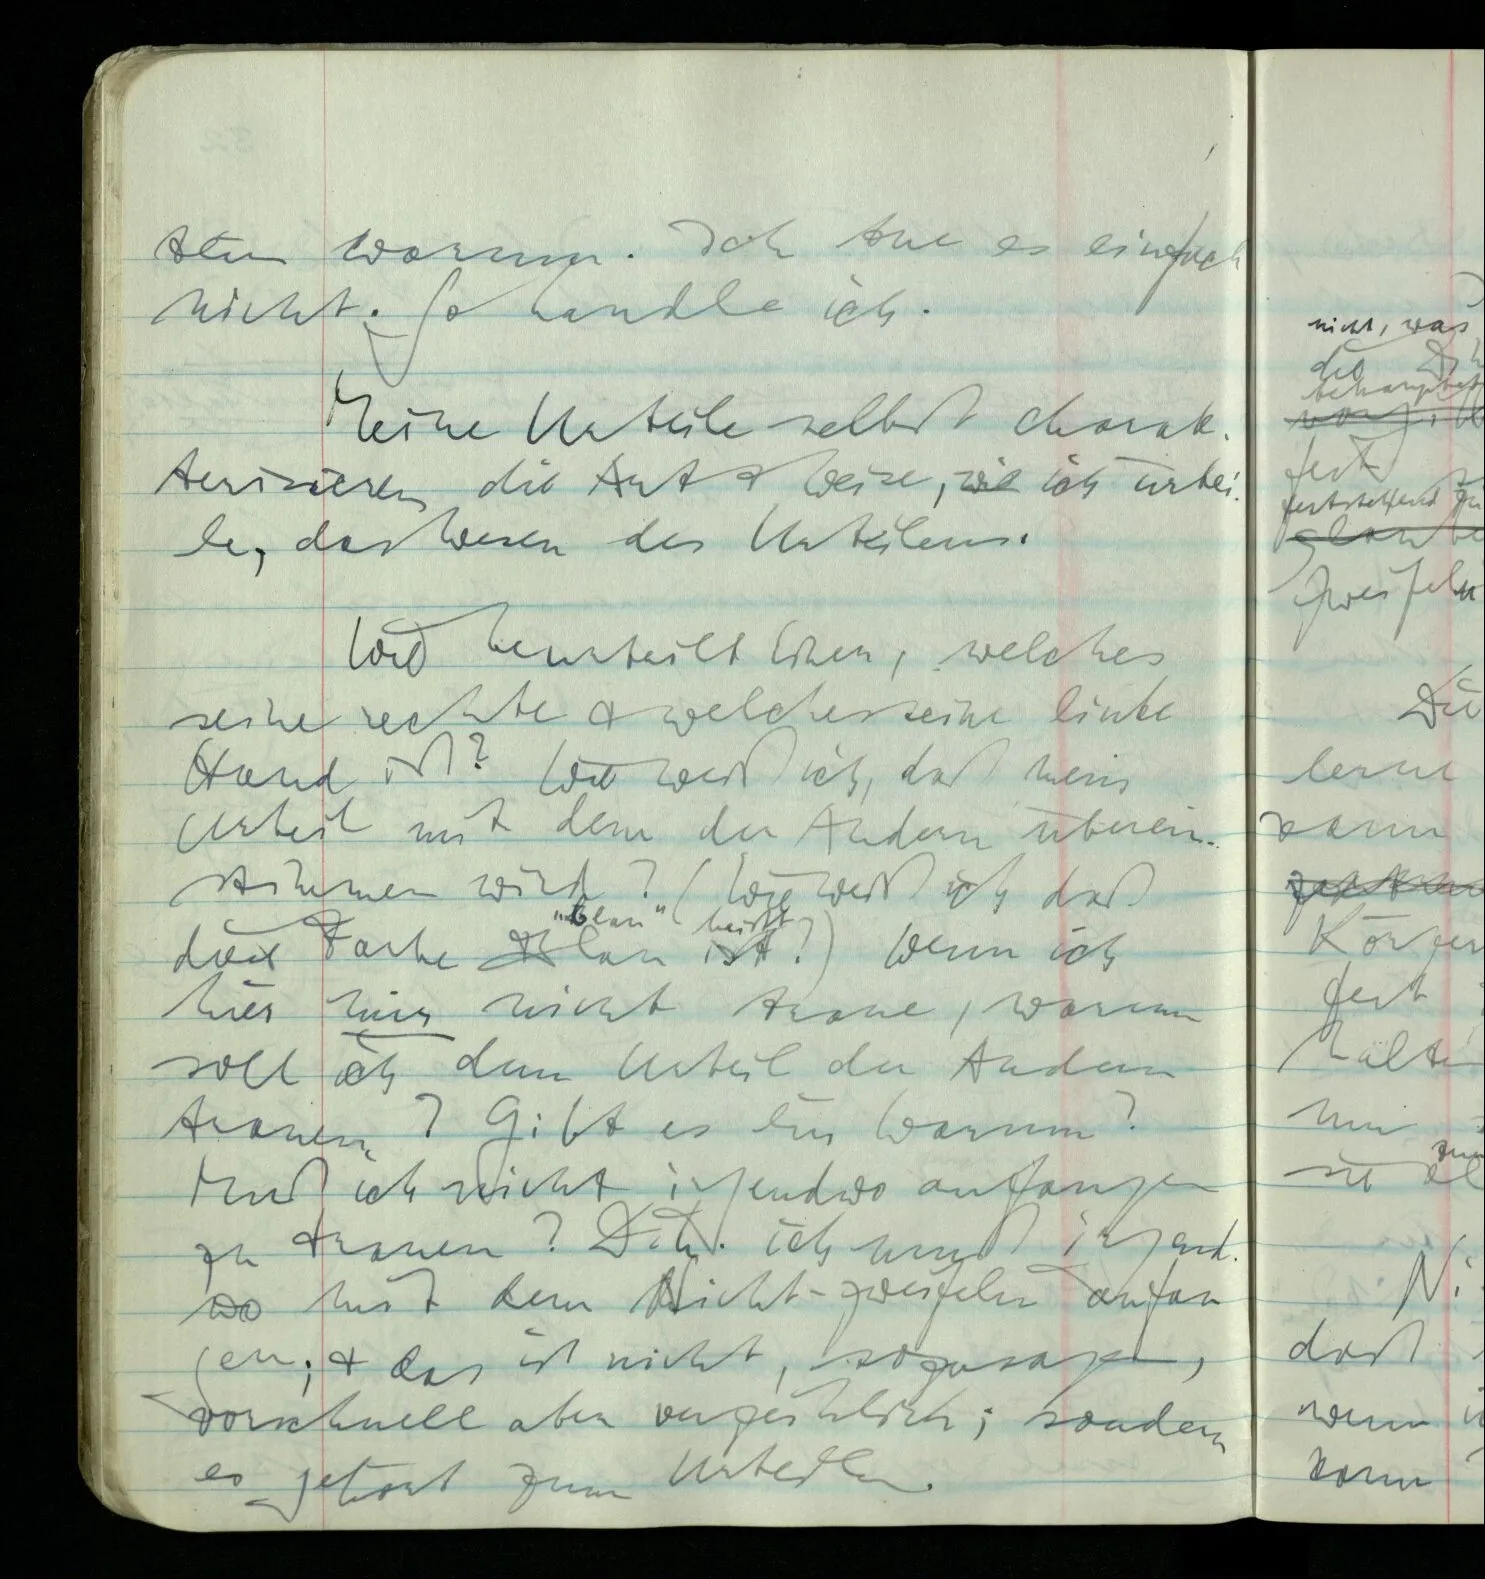 sten warum. Ich tue es einfach
nicht. So handle ich.
Meine Urteile selbst charak-
terisieren die Art & Weise, wie ich urtei-
le, das Wesen des Urteilens.
Wie beurteilt Einer, welches
seine rechte & welches seine linke
Hand ist? Wie weiß ich, daß mein
Urteil mit dem der Andern überein-
stimmen wird? (Wie weiß ich daß
"blau" heißt
diese Farbe Blau ist?) Wenn ich
hier mir nicht traue, warum
soll ich dem Urteil der Andern
trauen? Gibt es ein Warum?
Muß ich nicht irgendwo anfangen
zu trauen? D.h. ich muß irgend-
wo mit dem Nicht-zweifeln anfan
gen; & das ist nicht, sozusagen,
vorschnell aber verzeihlich; sondern
es gehört zum Urteilen.
nicht, was
die
behauptet
fest
feststehend
glaube
zweifeln
Die
lerne
kann
Körper
fest
halte
nur
sie
Ni
daß
wenn
kann